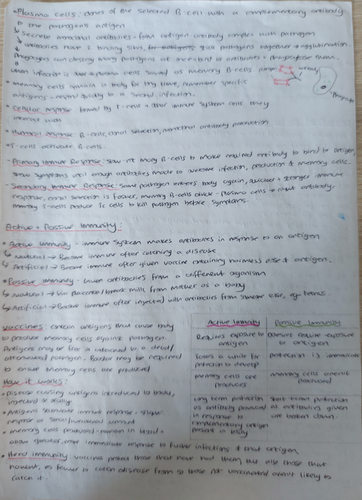 • Plasma cells: clones of the selected B cell with a complementary antibody
to the pathogen's antigen
↳ Secrete monoclonal antibodies - form antigen antibody complex with pathogen
↳ antibodies have 2 binding sites, pathogens together = agglutination
↳ Phagocytes can destroy many pathogens at once
when infection is over plasma cells memory B cells
• memory cells remain in body for long time, remember specific
antigens - respond quickly to a second infection.
Cellular response: T-cells + other immune system cells they
interact with
• Humoral response: B-cells, clonal selection, monoclonal antibody production
• Primary Immune Response: slow not many B-cells to make required antibody to bind to antigen
show symptoms until enough antibodies made to overcome infection, production of memory cells.
• Secondary Immune Response: Same pathogen enters body again, quicker + stronger immune
response, clonal selection is faster, memory B-cells divide - plasma cells - right antibody,
memory T-cells produce Tc cells to kill pathogen before symptoms.
Active + Passive Immunity:
• Active Immunity - immune system makes antibodies in response to an antigen
↳ Natural → Become immune after catching a disease
↳ Artificial → Become immune after given vaccine containing harmless dose of antigen.
• Passive Immunity - Given antibodies from a different organism
↳ Natural → Via placenta / breast milk from mother as a baby
↳ Artificial → Become immune after injected with antibodies from someone else, eg. tetanus
Vaccines: contain antigens that cause body
to produce memory cells against pathogen.
Antigens may be free or attached to a dead/
attenuated pathogen. Booster may be required
to ensure memory cells are produced
How it works:
• Disease causing antigens introduced to body,
injected or orally
• Antigens stimulate immune response
• memory cells produced, remain in blood
immediate response to further infections of that antigen.
• Herd immunity: vaccine protect those that have had them, but also those that
haven't, as fewer to catch disease from so those not vaccinated aren't likely to
catch it.
Active Immunity
Passive Immunity
Requires exposure to antigen
Doesn't require exposure to antigen
Takes a while for protection to develop
Protection is immediate
memory cells are produced
memory cells aren't produced
Long term protection as antibody produced in response to complementary antigen present in body
Short term protection as antibodies given are broken down